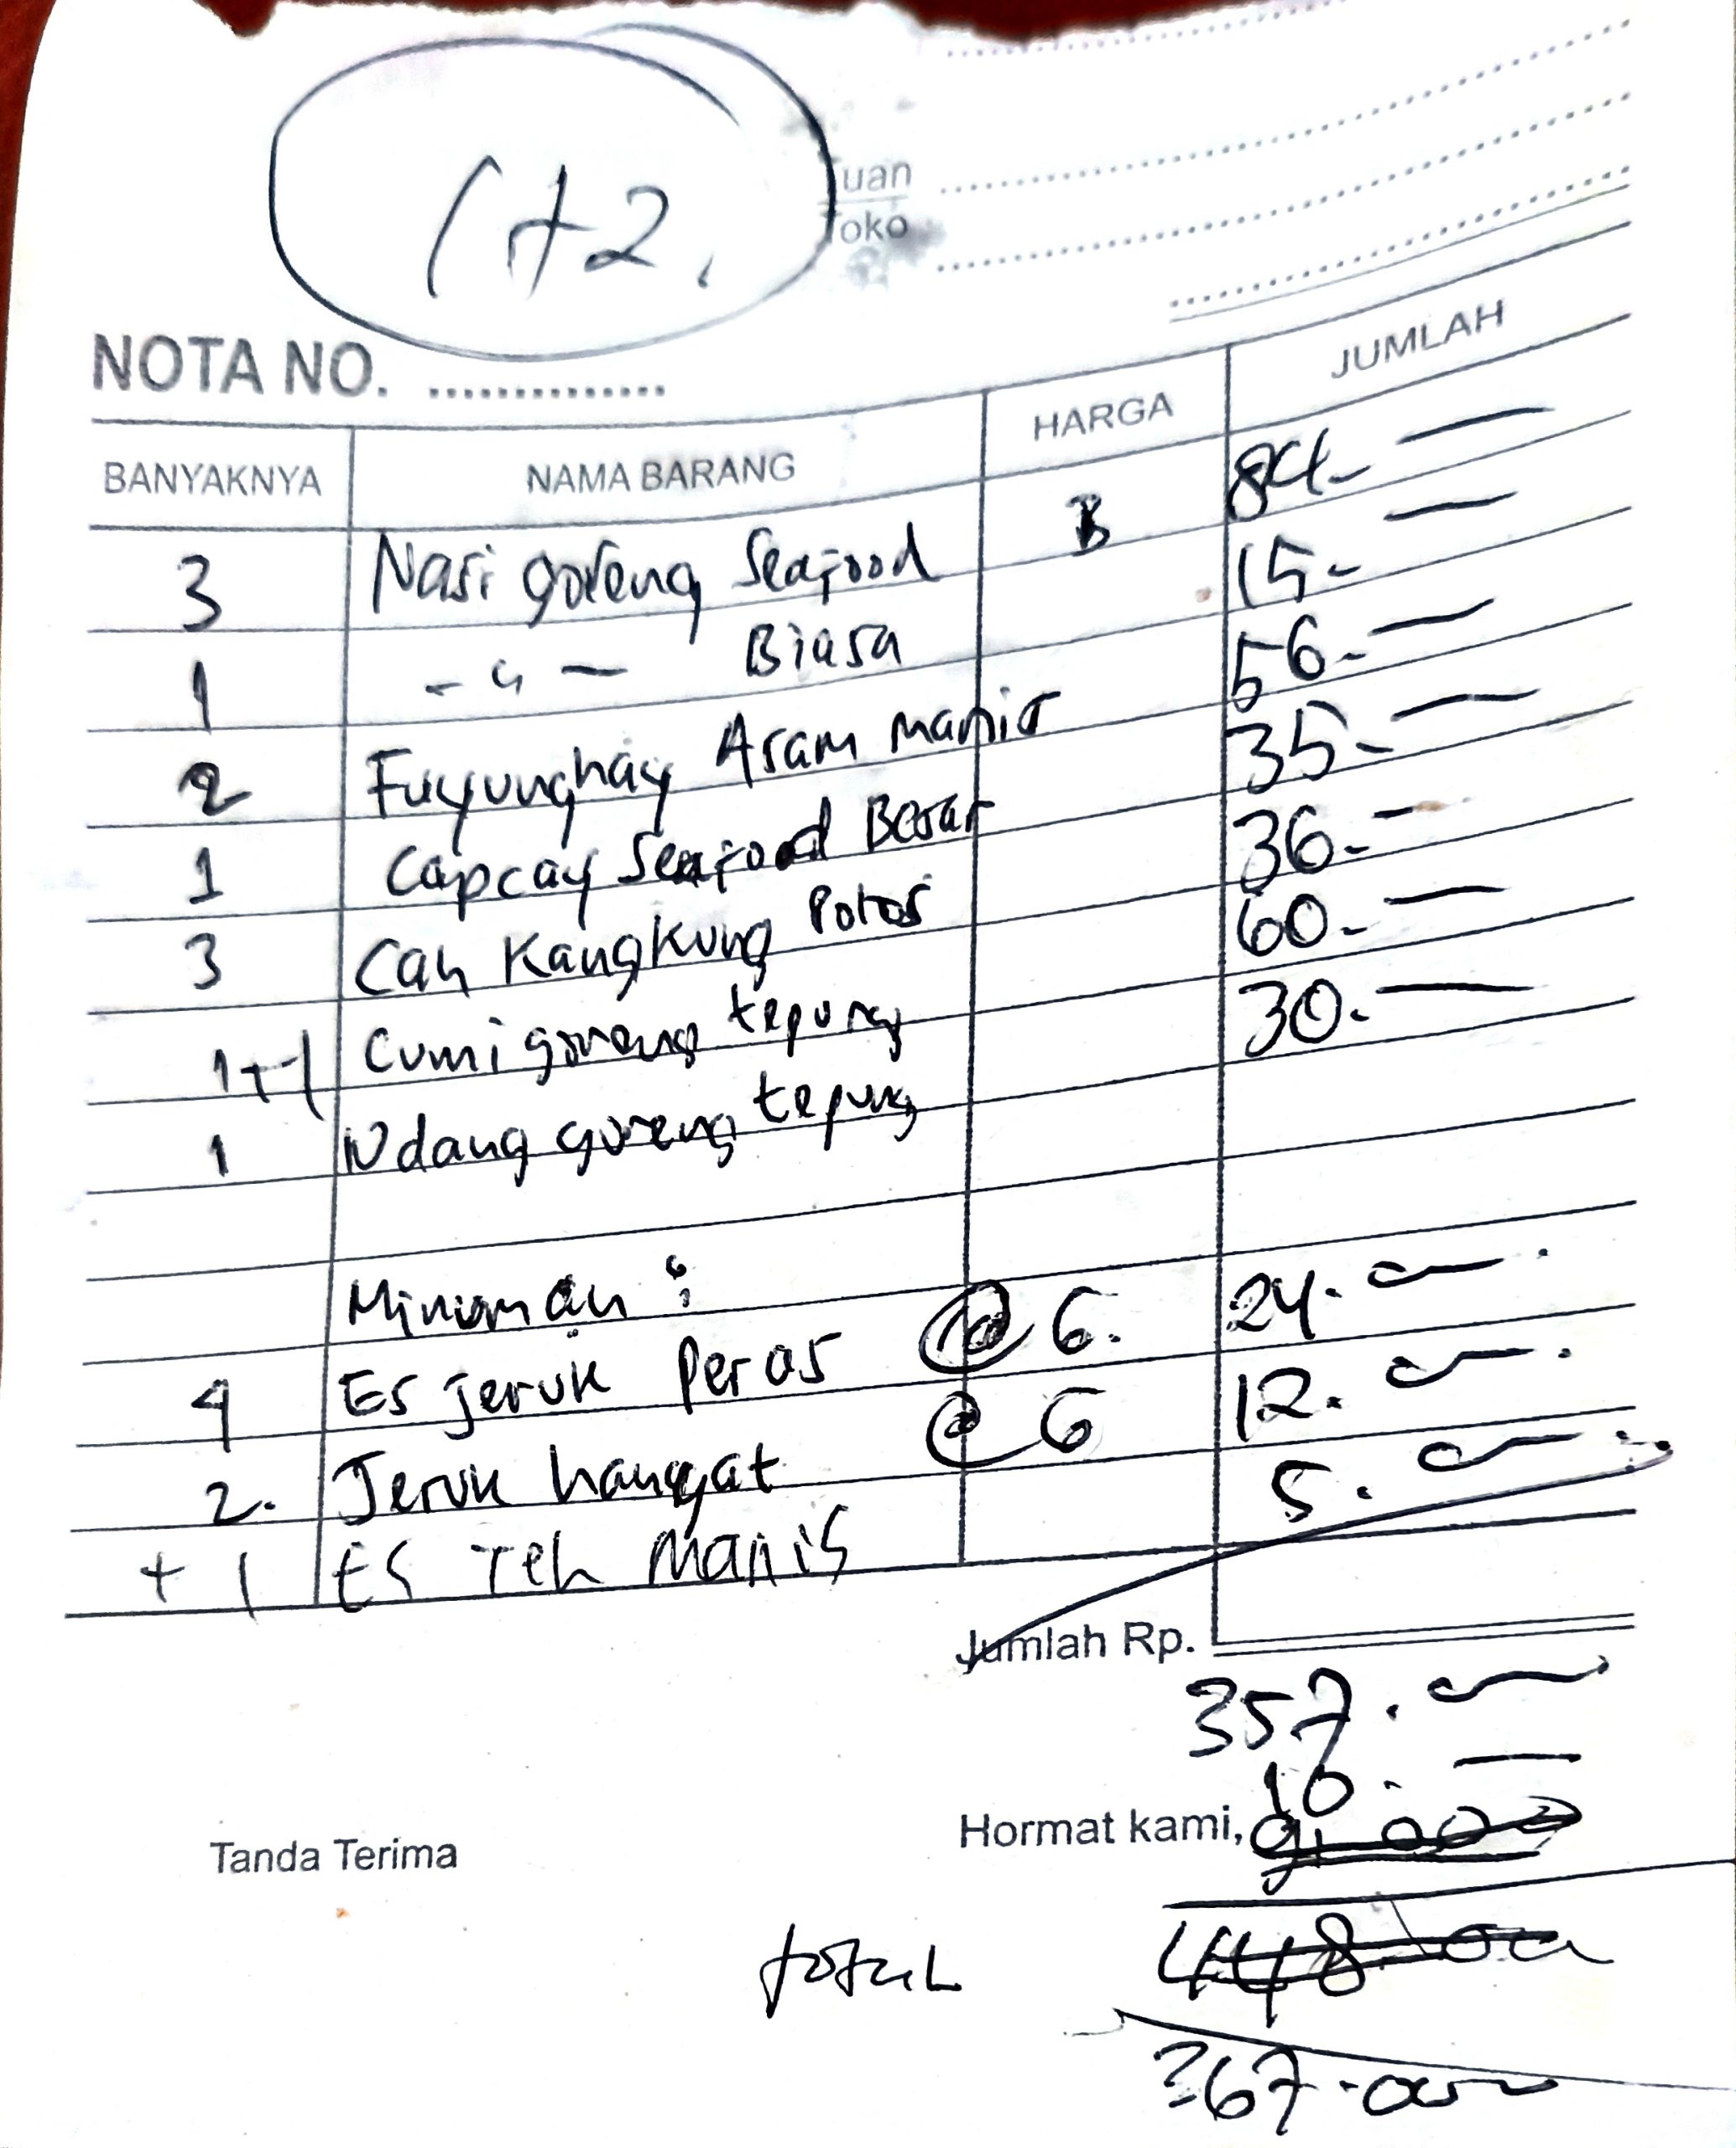 1+2.
Tuan
Toko
NOTA NO. ..............
BANYAKNYA NAMA BARANG HARGA JUMLAH
3 Nasi goreng Seafood B 84.-
1 - " - Biasa 15.-
2 Fuyunghay Asam manis 56.-
1 Capcay Seafood Besar 35.-
3 Cah Kangkung Polos 36.-
1+1 Cumi goreng tepung 60.-
1 Udang goreng tepung 30.-
Minuman :
4 Es jeruk Peras @ 6. 24.-
2. Jeruk hangat @ 6 12.-
+ 1 ES Teh Manis 5.-
Jumlah Rp.
357.-
10.-
Tanda Terima Hormat kami, 91.000
total 448.000
367.000